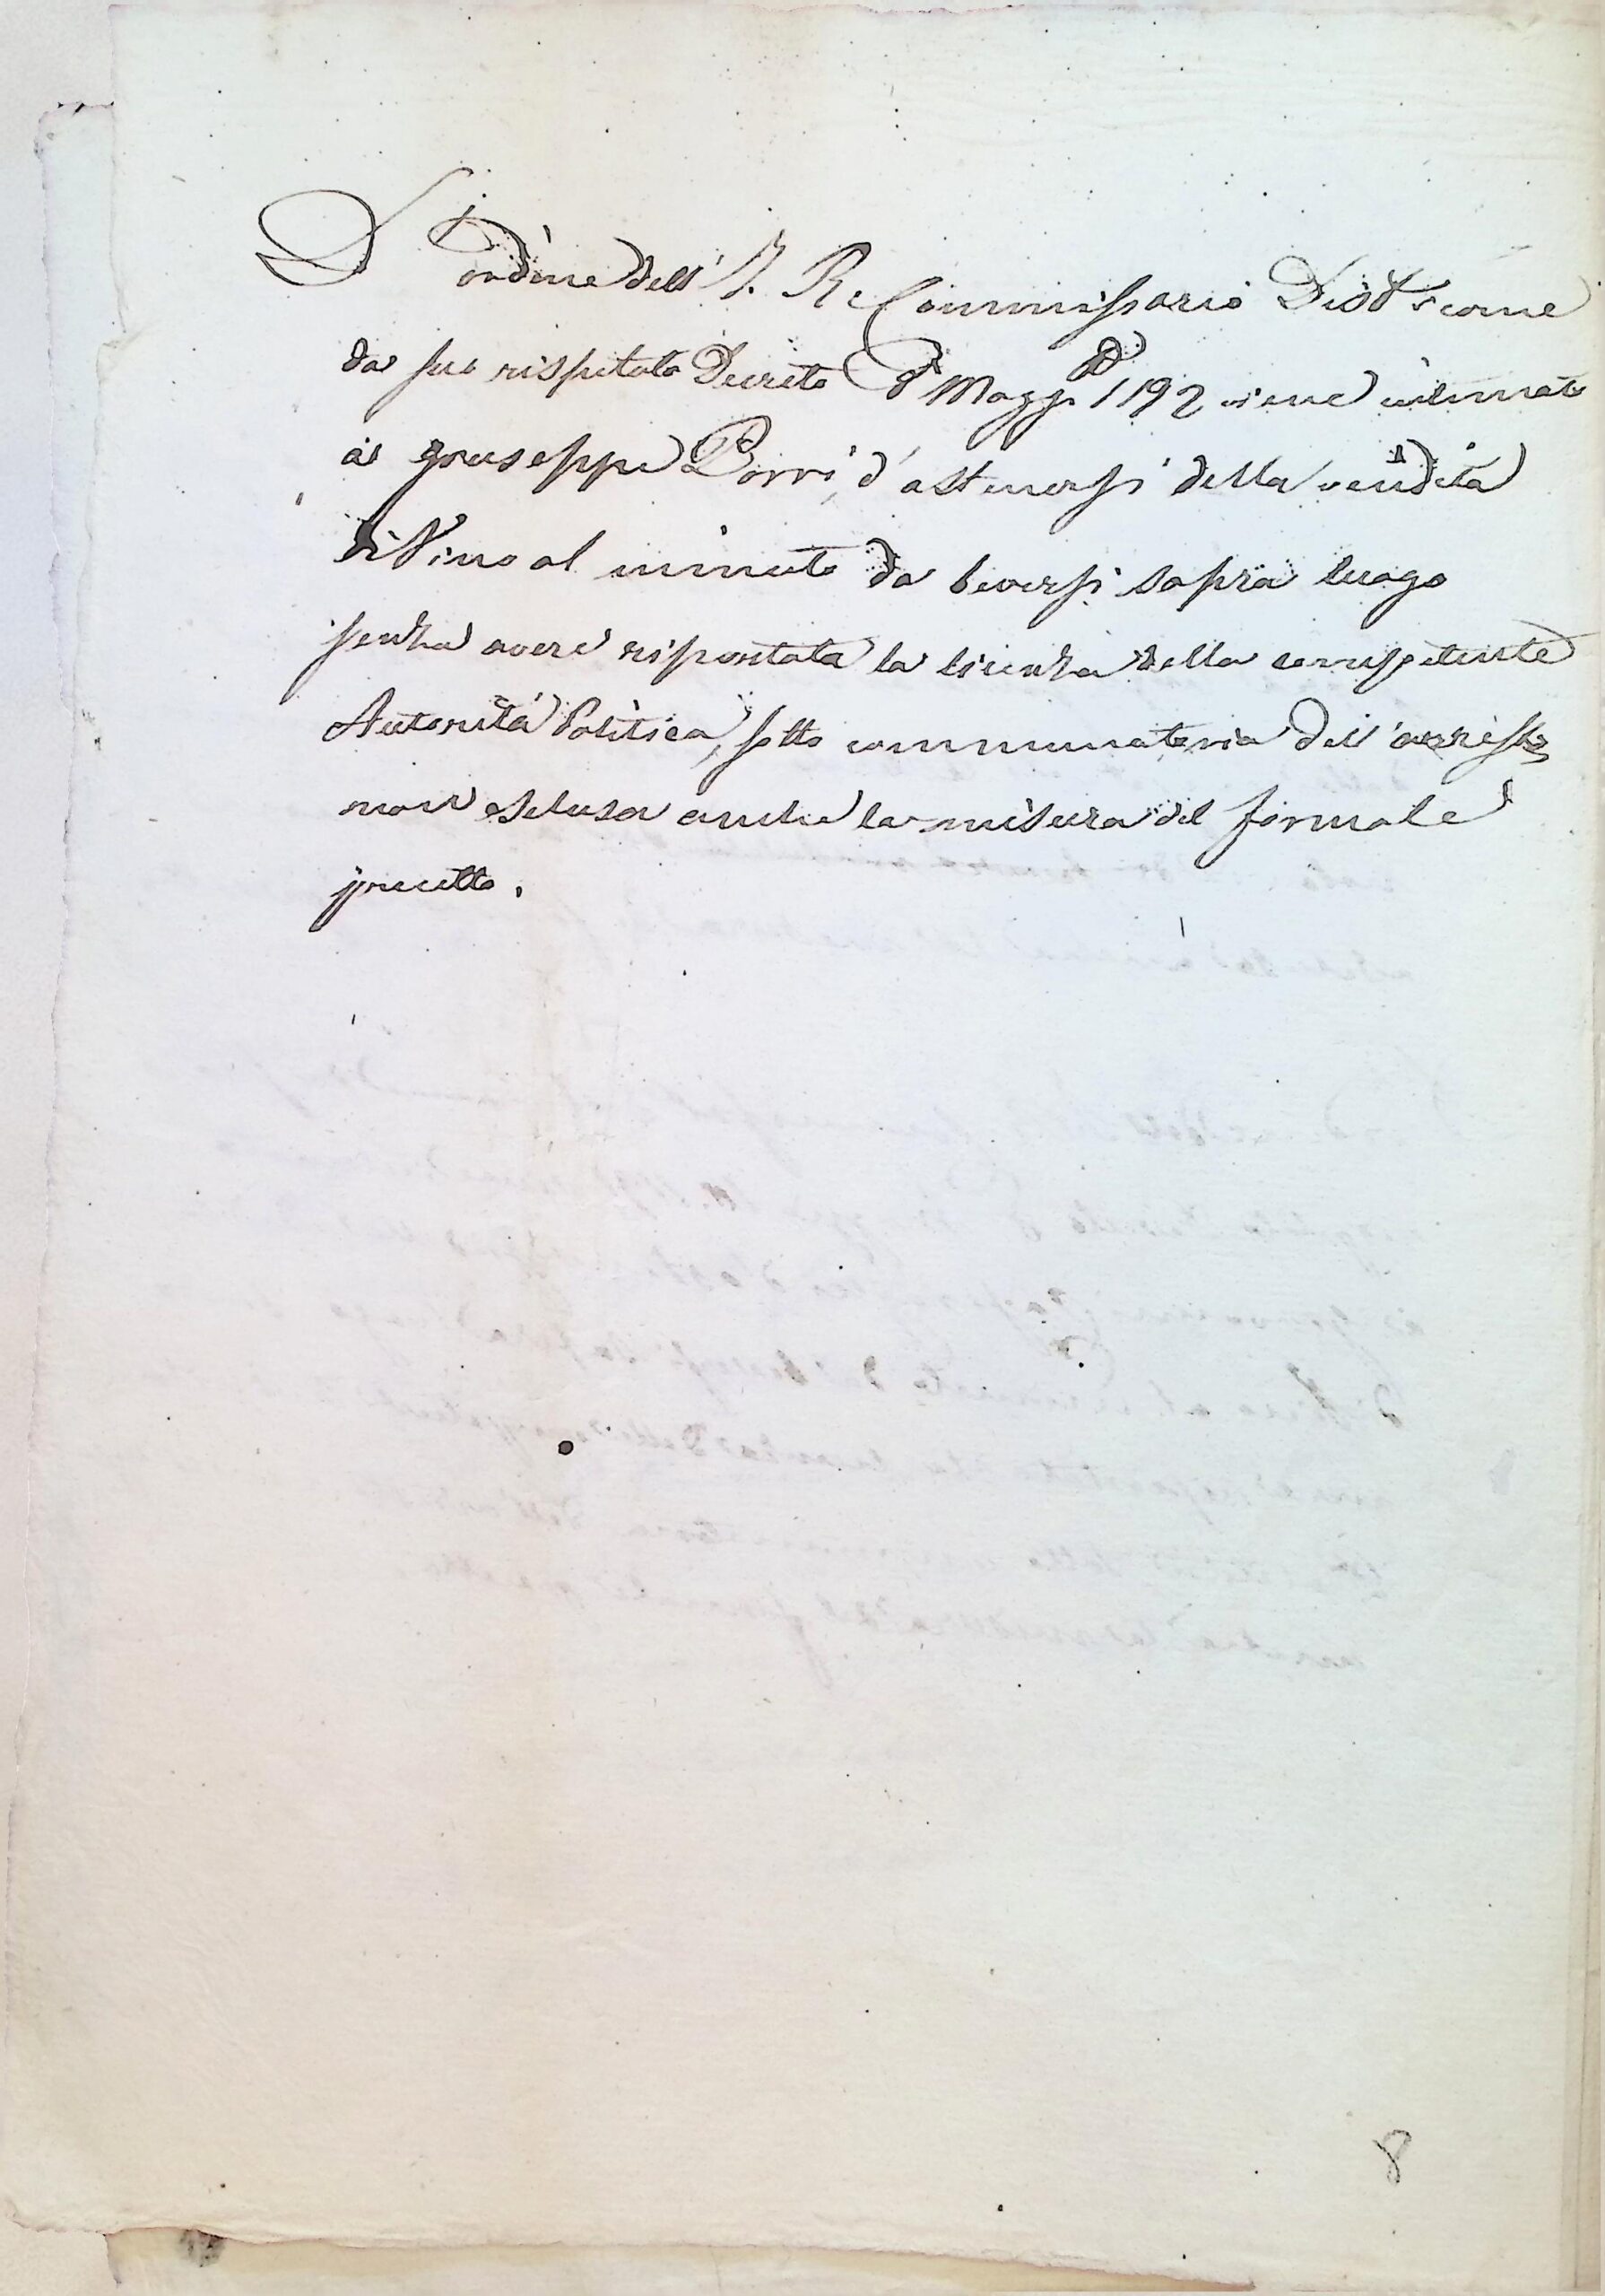 D'ordine dell' I. R. Commissario Dist.e come
da suo rispettato Decreto 8 Magg. N 1192 viene intimato
à Giuseppe Porri, d'astenersi della vendita
di Vino al minuto da beversi sopra luogo
senza avere risportata la licenza della competente
Autorità Politica, sotto comminatoria dell'arresto
non esclusa anche la misura del formale
precetto.
8